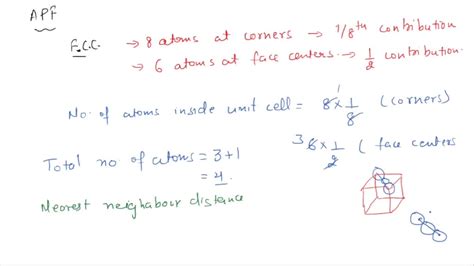 APF
F.C.C. → 8 atoms at corners → 1/8th contribution
→ 6 atoms at face centers → 1/2 contribution
No. of atoms inside unit cell = 8 × 1/8 (corners) 1
3 6 × 1/2 ( face centers
Total no of atoms = 3+1
= 4
Nearest neighabour distance